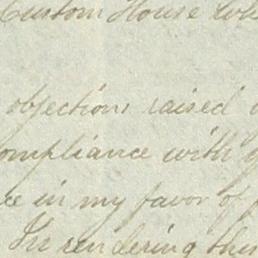 Custom House
objections raised
compliance with
in my favor of
In rendering this